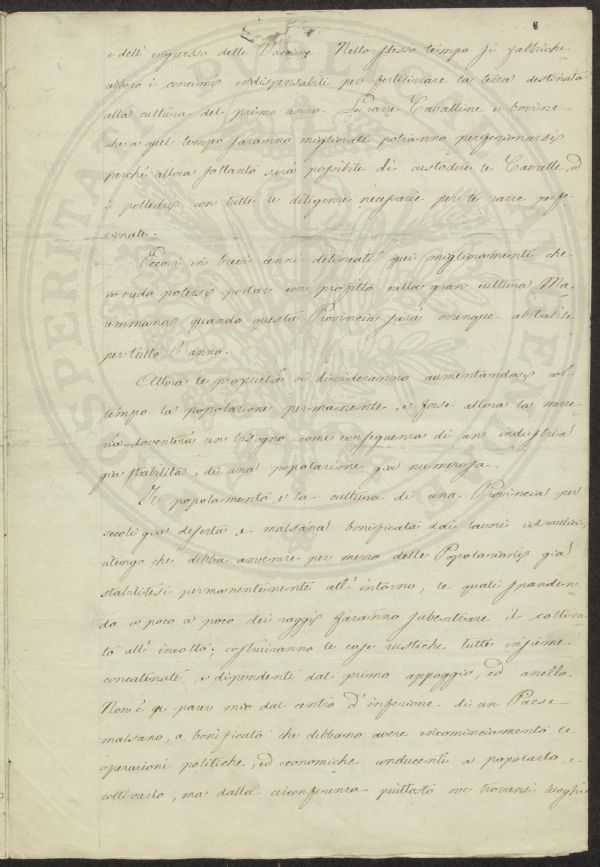 6
e dell' ingrasso delle Vaccine. Nello stesso tempo si fabbriche=
=rebbero i concimi indispensabili per fertilizzare la terra destinata
alla cultura del primo anno. Le razze Cavalline e bovine
che a quel tempo saranno migliorate potranno perfezionarsi
perché allora soltanto sarà possibile di custodire le Cavalle, ed
i polledri con tutte le diligenze necessarie per le razze perfe=
zionate.
Eccovi in brevi cenni delineati quei miglioramenti che
io credo potersi portar con profitto nella gran cultura Ma=
remmana quando questa Provincia sarà ovunque abitabile
per tutto l' anno.
Allora le proprietà si divideranno aumentandosi col
tempo la popolazione permanente, e forse allora la mezze=
ria diventerà un bisogno come conseguenza di un industria
già stabilita, di una popolazione già numerosa.
Il popolamento e la cultura di una Provincia per
secoli già deserta e malsana bonificata dai lavori idraulici,
ritengo che debba avvenire per mezzo delle Popolazioni già
stabilitesi permanentemente all' intorno, le quali spanden=
do a poco a poco dei raggi faranno subentrare il coltiva=
to all' incolto; costruiranno le case rustiche tutte insieme
concatenate, e dipendenti dal primo appoggio, ed anello.
Non è p. parer mio dal centro d' infezione di un Paese
malsano, o bonificato che debbano avere incominciamento le
operazioni politiche, ed economiche anducenti a popolarlo, e
coltivarlo, ma dalla circonferenza piuttosto ove trovansi luoghi